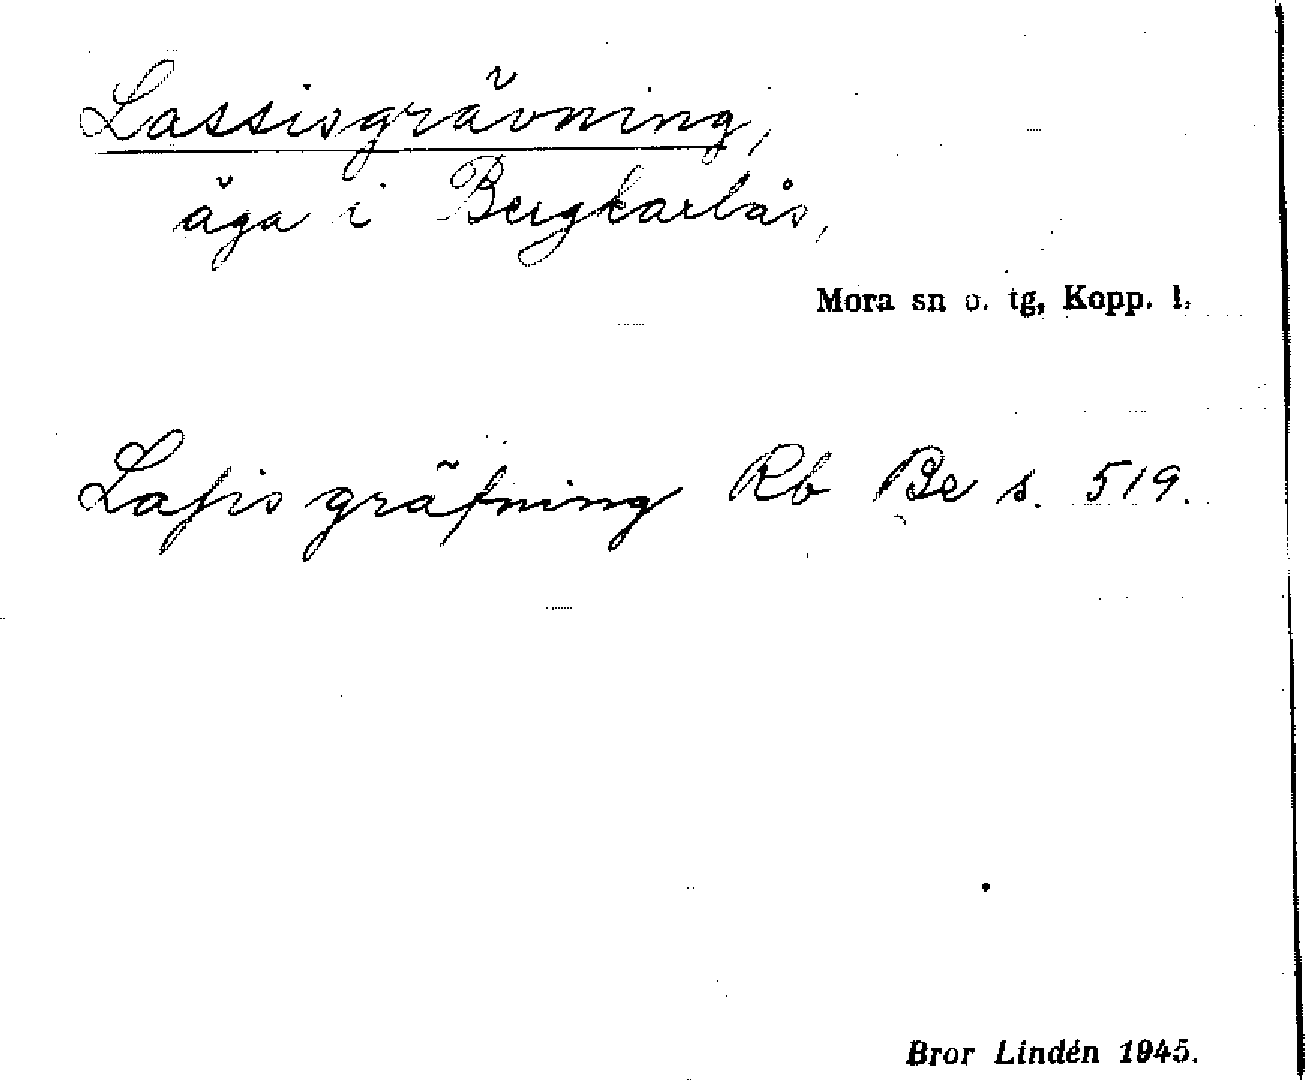 Lassisgrävning,
äga i Bergkarlås,
Mora sn o. tg, Kopp. l.
Lasisgräfning Rb Be s. 519.
Bror Lindén 1945.